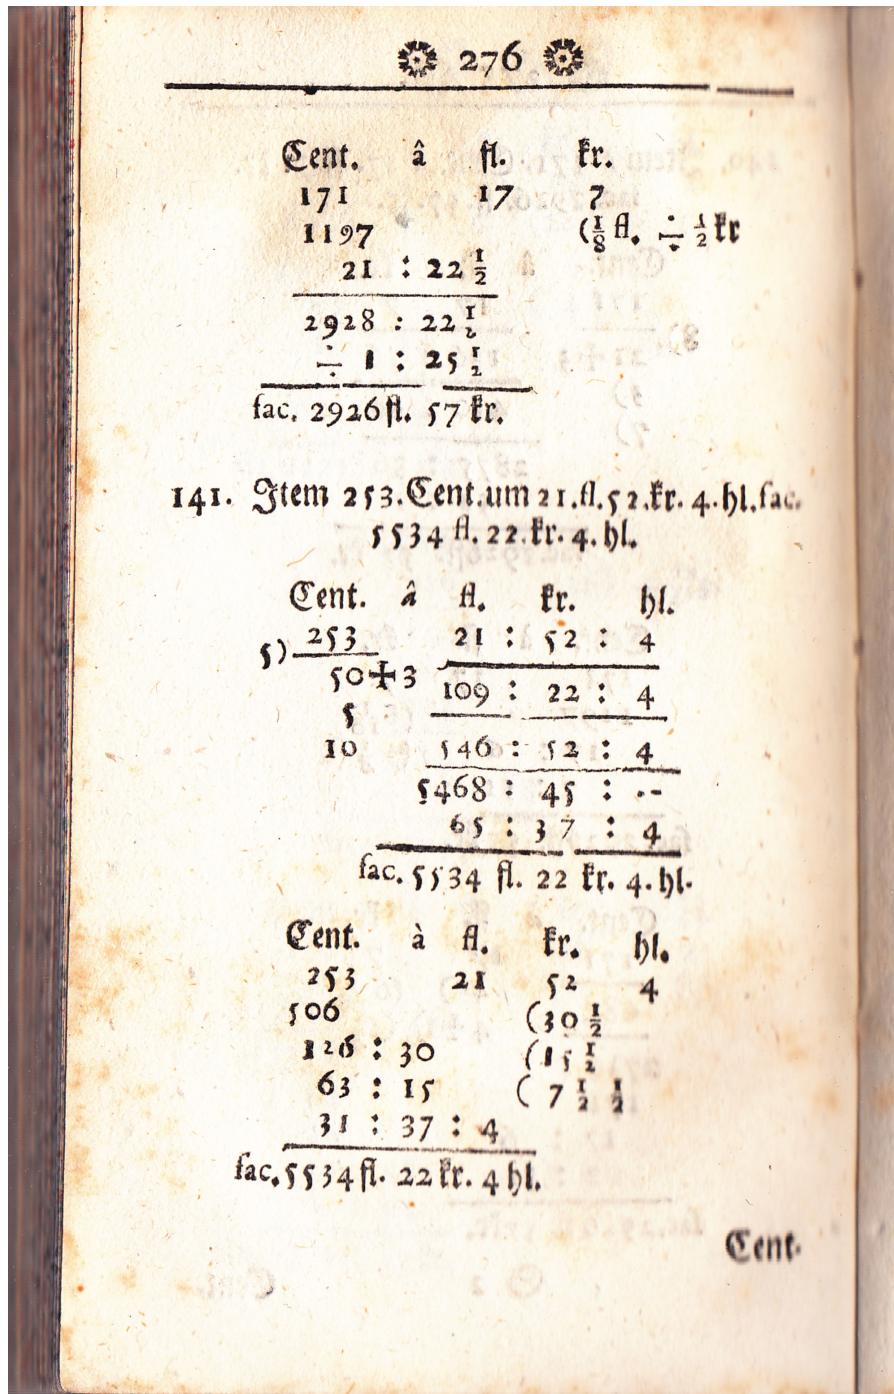 276
Cent. â fl. kr.
171 17 7
1197 (1/8 fl. ÷ 1/2 kr
21 : 22 1/2
2928 : 22 1/2
÷ 1 : 25 1/2
fac. 2926 fl. 57 kr.
141. Item 253. Cent. um 21. fl. 52. kr. 4. hl. fac.
5534 fl. 22. kr. 4. hl.
Cent. â fl. kr. hl.
5) 253 21 : 52 : 4
50+3 109 : 22 : 4
5
10 546 : 52 : 4
5468 : 45 : --
65 : 37 : 4
fac. 5534 fl. 22 kr. 4. hl.
Cent. à fl. kr. hl.
253 21 52 4
506 (30 1/2
126 : 30 (15 1/2
63 : 15 ( 7 1/2 1/2
31 : 37 : 4
fac. 5534 fl. 22 kr. 4 hl.
Cent.